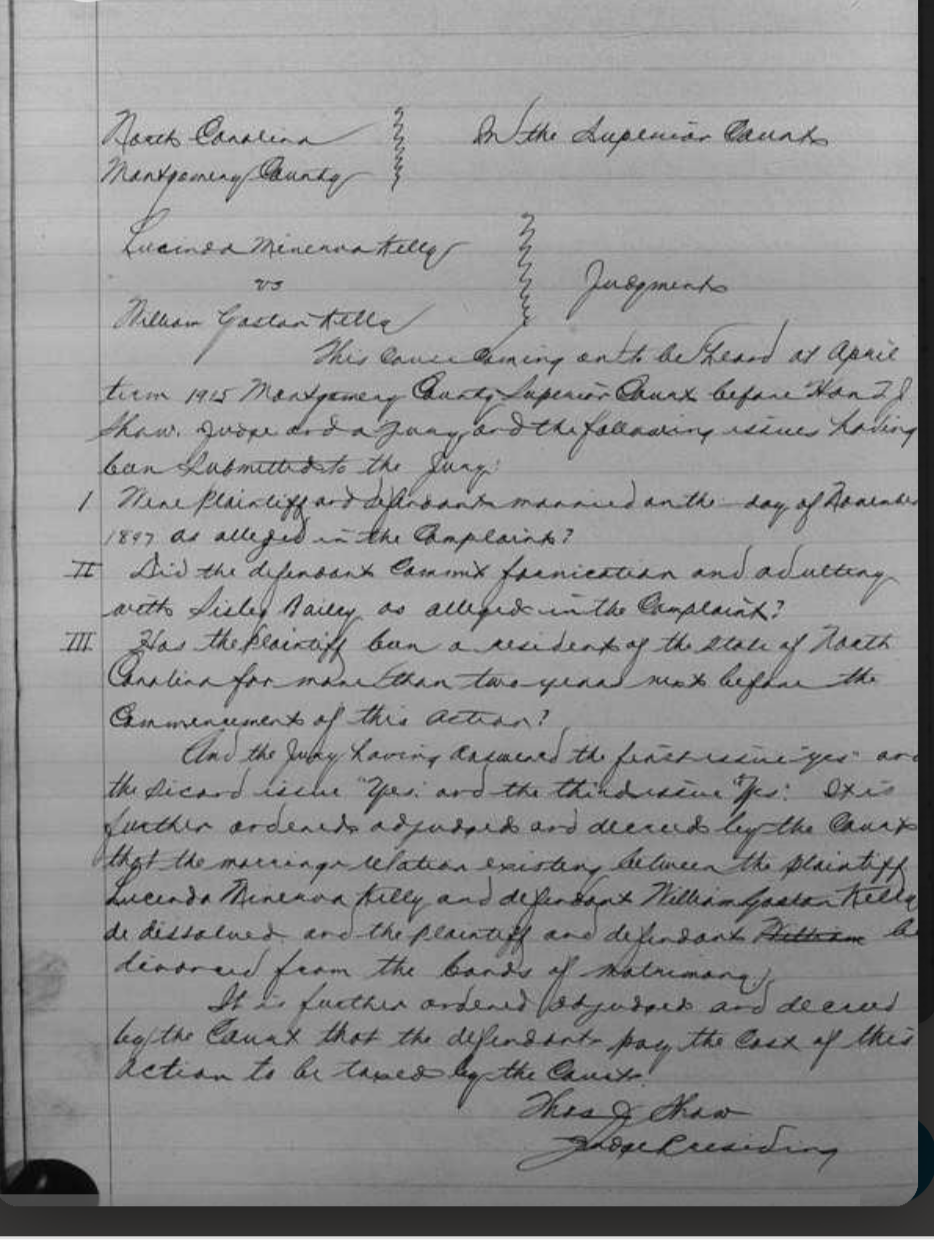 North Carolina
In the Superior Court
Montgomery County
Lucinda Minerva Kelly
vs
Judgment
William Gaston Kelly
This cause coming on to be heard at April
term 1915 Montgomery County Superior Court before Hon T J
Shaw. Judge and a Jury, and the following issues having
been submitted to the Jury:
I Were Plaintiff and defendant married on the - day of November
1897 as alleged in the Complaint?
II Did the defendant Commit fornication and adultry
with Sisley Bailey, as alleged in the Complaint?
III Has the Plaintiff been a resident of the State of North
Carolina for more than two years next before the
Commencement of this action?
And the Jury having answered the first issue "yes" and
the second issue "Yes". and the third issue "Yes". It is
further ordered adjudged and decreed by the Court
that the marriage relation existing between the plaintiff
Lucinda Minerva Kelly and defendant William Gaston Kelly
be dissolved and the plaintiff and defendant be
divorced from the bonds of matrimony.
It is further ordered adjudged and decreed
by the Court that the defendant pay the Cost of this
Action to be taxed by the Court.
Thos J Shaw
Judge Presiding